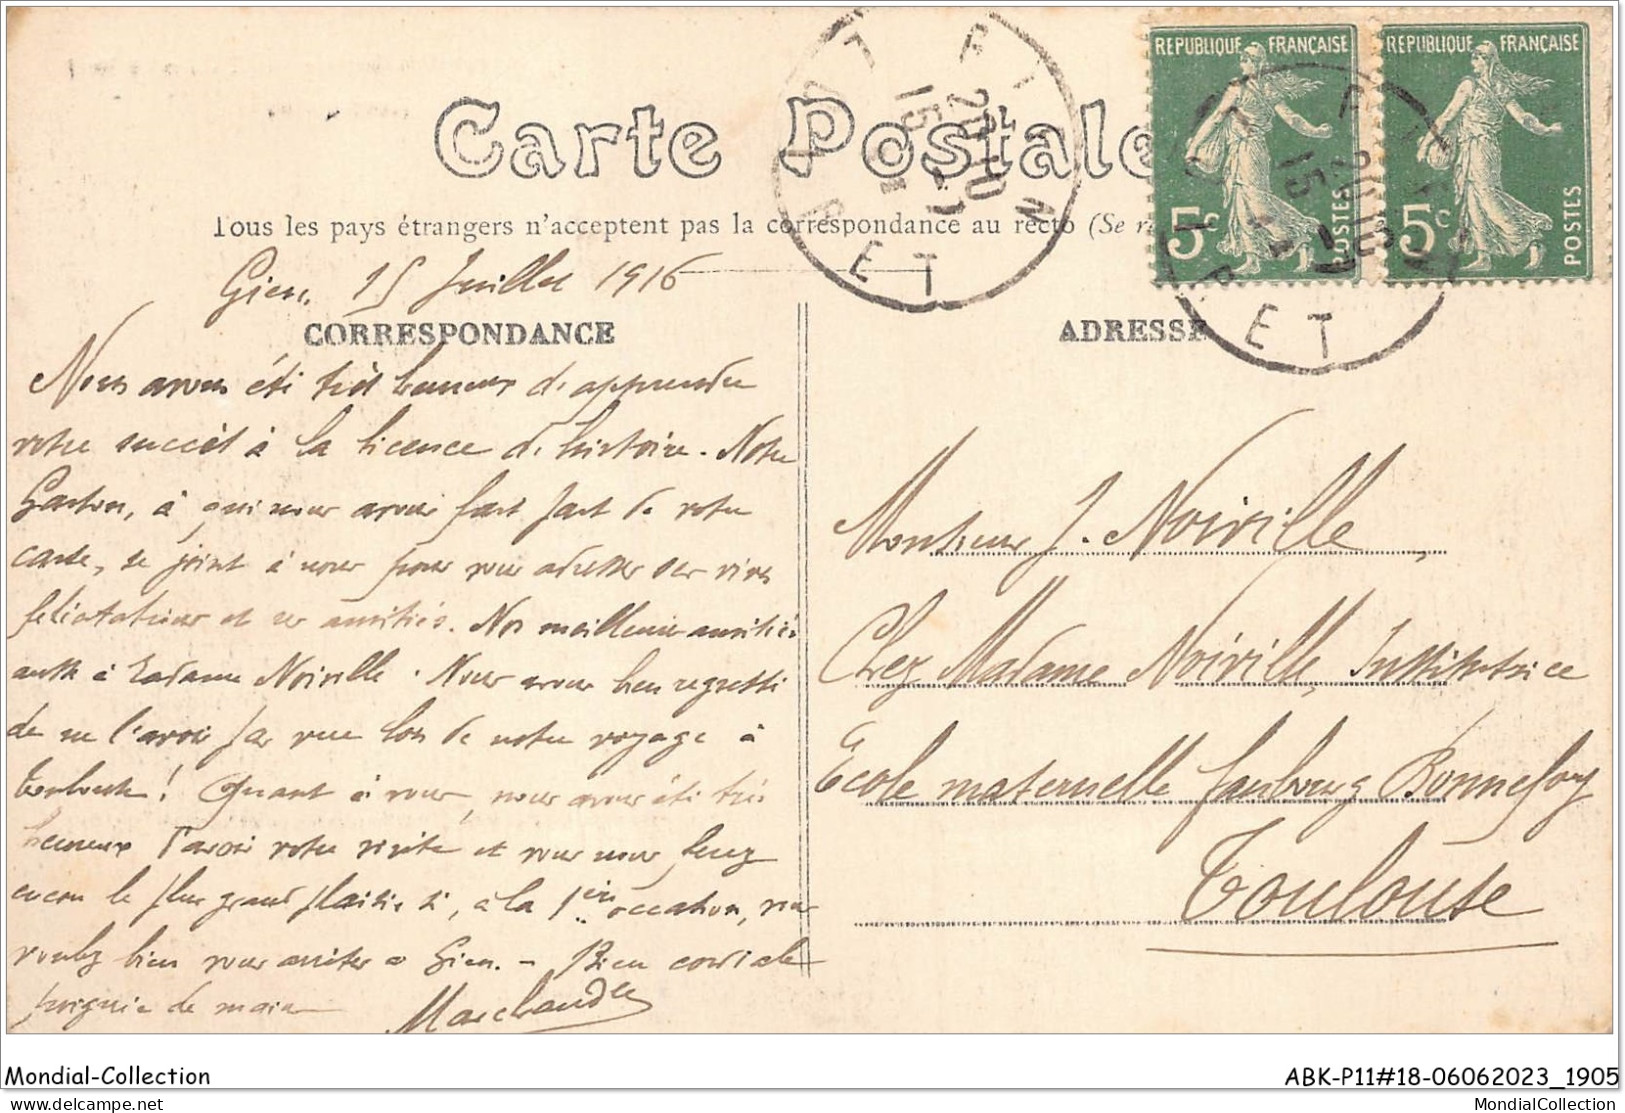 Carte Postale
Tous les pays étrangers n'acceptent pas la correspondance au recto (Se r
REPUBLIQUE FRANÇAISE
5c POSTES
REPUBLIQUE FRANÇAISE
5c POSTES
20 10
15 -7
LOIRET
20 10
15 -7
LOIRET
Gien, 15 Juillet 1916
CORRESPONDANCE
Nous avons été très heureux d'apprendre
votre succès à la licence d'histoire. Notre
Gaston, à qui nous avons fait part de votre
carte, se joint à nous pour vous adresser ses vives
félicitations et ses amitiés. Nos meilleures amitiés
aussi à Madame Noirville. Nous avons bien regretté
de ne l'avoir pas vue lors de notre voyage à
Toulouse! Quant à vous, nous avons été très
heureux d'avoir votre visite et vous nous ferez
encore le plus grand plaisir si, à la 1ière occasion, vous
voulez bien vous arrêter à Gien. - Bien cordiale
poignée de main
Marchand
ADRESSE
Monsieur J. Noirville,
Chez Madame Noirville, Institutrice
Ecole maternelle faubourg Bonnefoy
Toulouse
Mondial-Collection
ABK-P11#18-06062023_1905
delcampe.net
MondialCollection